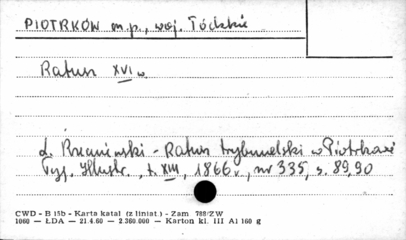 PIOTRKÓW m.p., woj. Łódzkie
Ratusz XVI w.
L. Rzeczniowski - Ratusz trybunalski w Piotrkowie
Tyg. Illustr., t. XIII, 1866 r., nr 335, s. 89,90
CWD - B 15b - Karta katal (z liniat.) - Zam 788/ZW
1060 — ŁDA — 21.4.60 — 2.360.000 — Karton kl. III A1 160 g